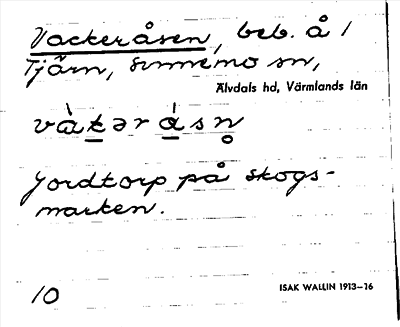 Vackeråsen, beb. å 1
Tjärn, Sunnemo sn,
Älvdals hd, Värmlands län
vàk̲ər á̲sn̥
Jordtorp på skogs-
marken.
10
ISAK WALLIN 1913–16